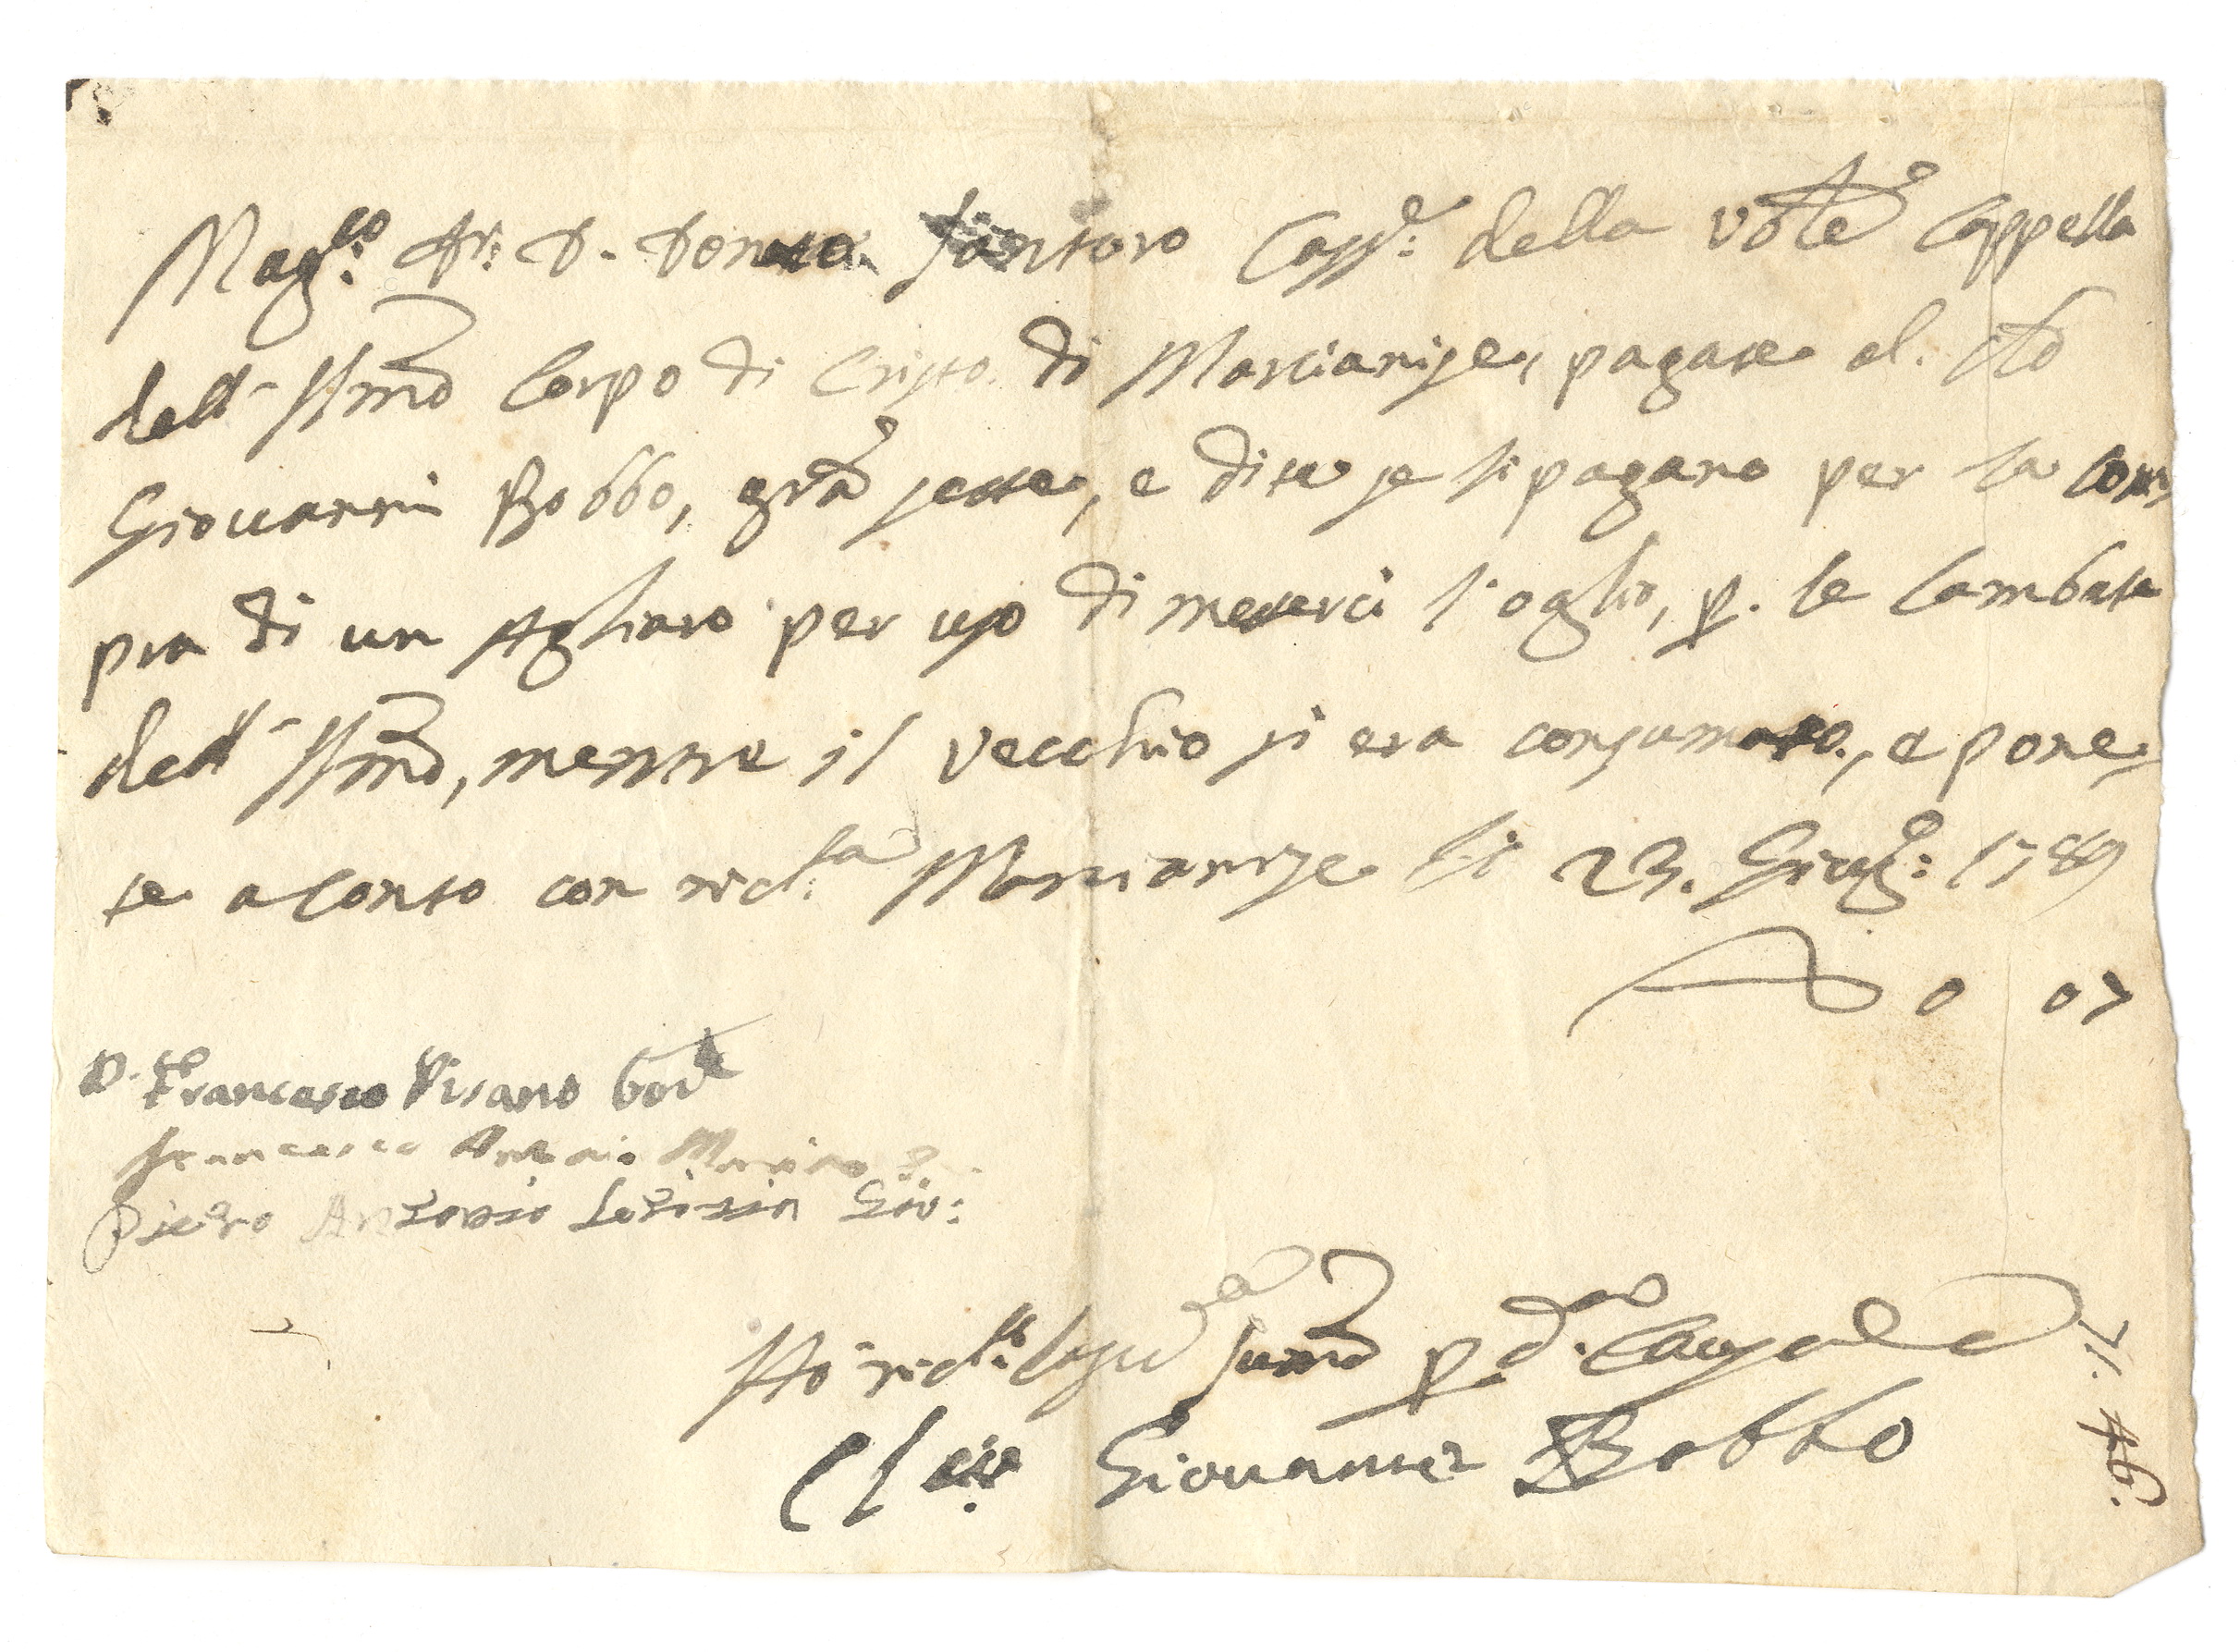 Mag.co Dr. D. Donato Santoro Cass.e della Vble Cappella
dell' SSmo Corpo di Cristo di Marcianise, pagate al Cl.o
Giovanni Bobbo, grana sette, e dite se li pagano per la com=
pra di un Agliaro per uso di metterci l'oglio, p. le lambate
dell' SSmo, mentre il vecchio si era consumato, e pone=
te a conto con ric.ta Marcianise li 23. Giug.o 1789
0 07
D. Francesco Pisano Gov.e
Francesco Antonio Marino
Pietro Antonio Letizia Gov:
Ho ric.to la sud.a summa p d.a Causale
Giovanni Bobbo
n. 46.